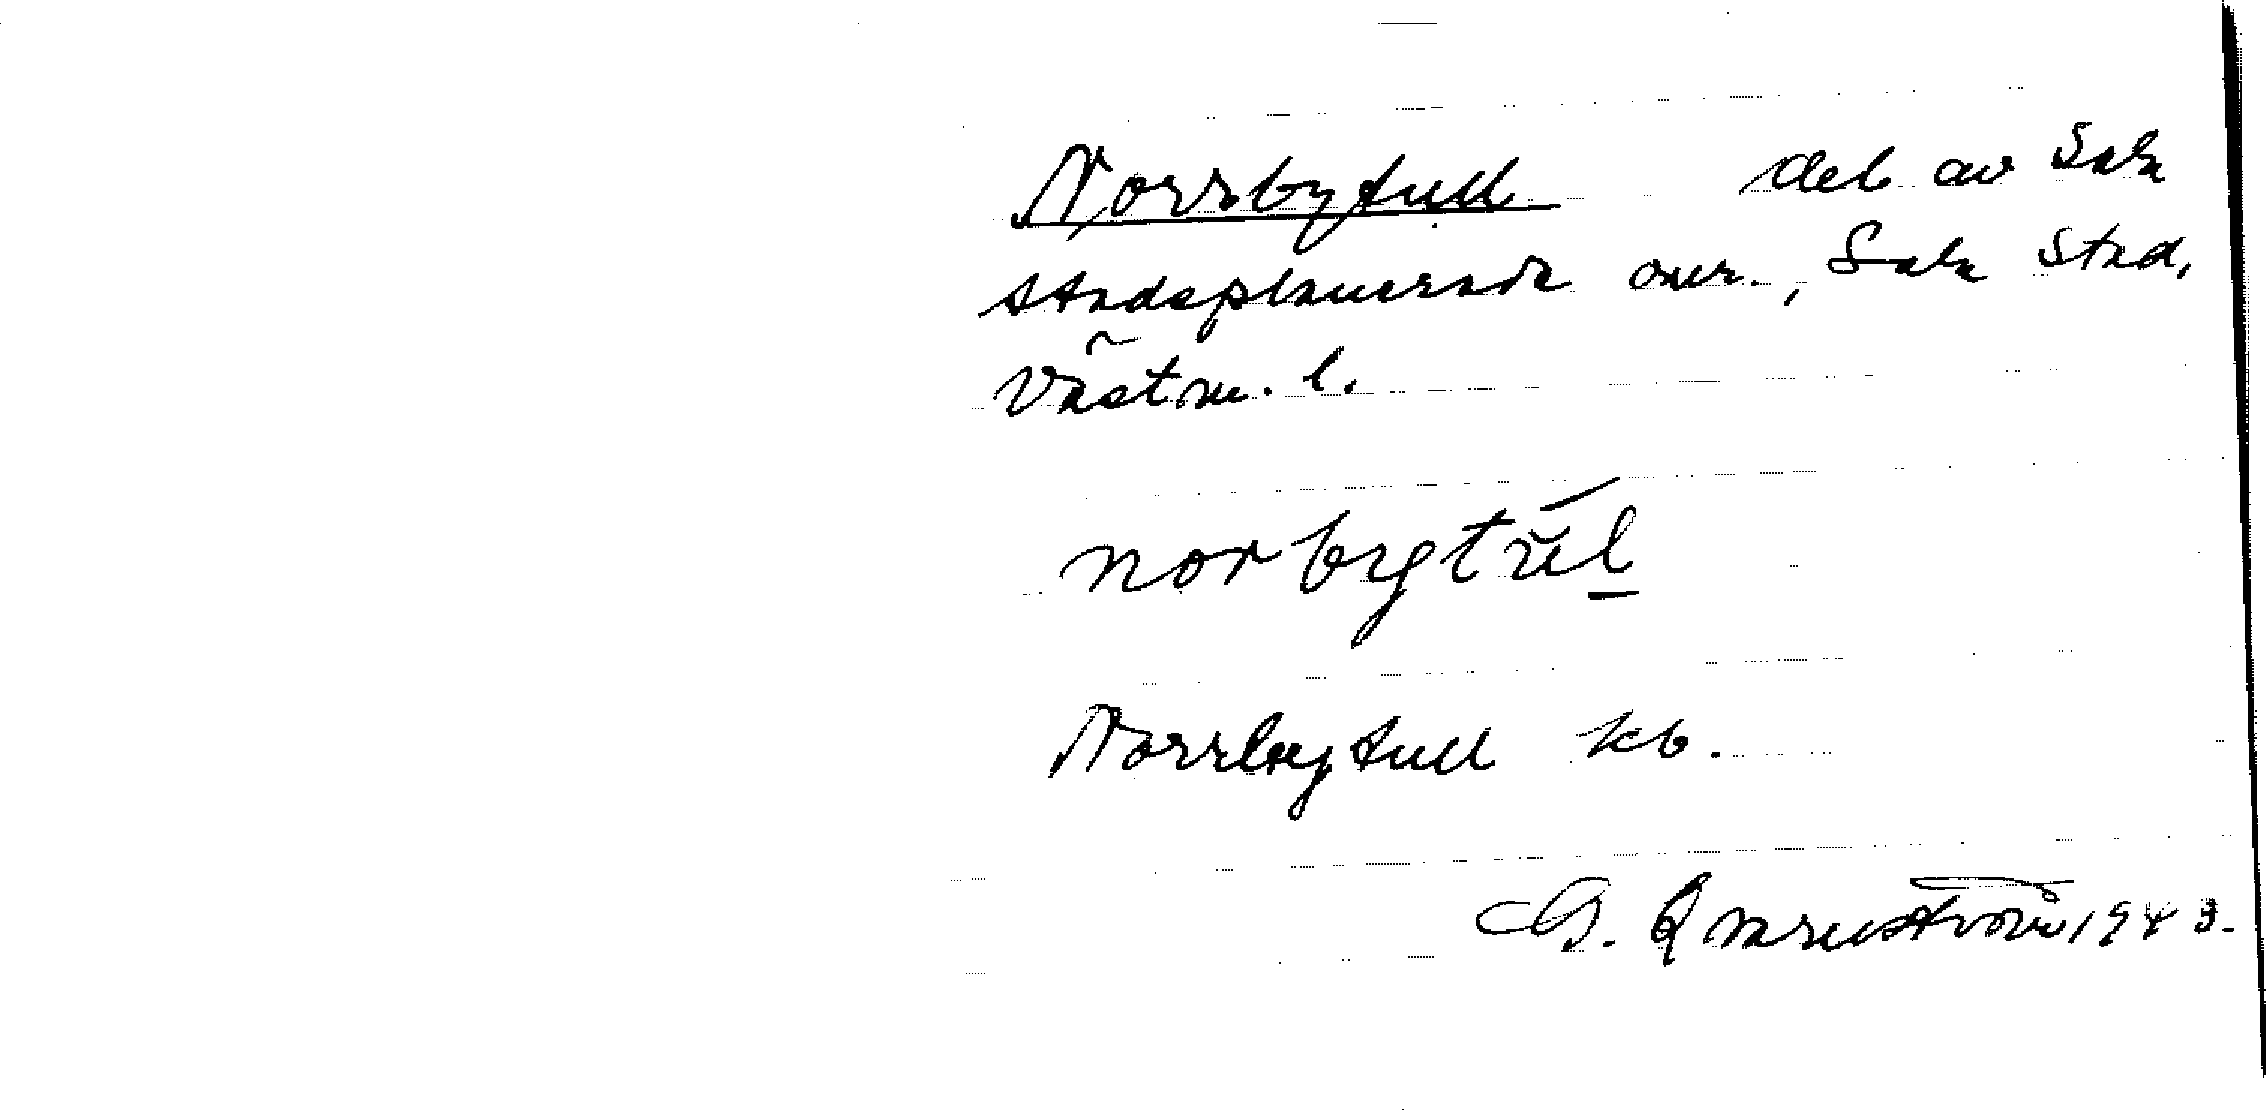 Norrbytull del av Sala
stadsplanerade omr., Sala stad,
Västm. l.
norbytul
Norrbytull kb.
G. Qvarnström 194